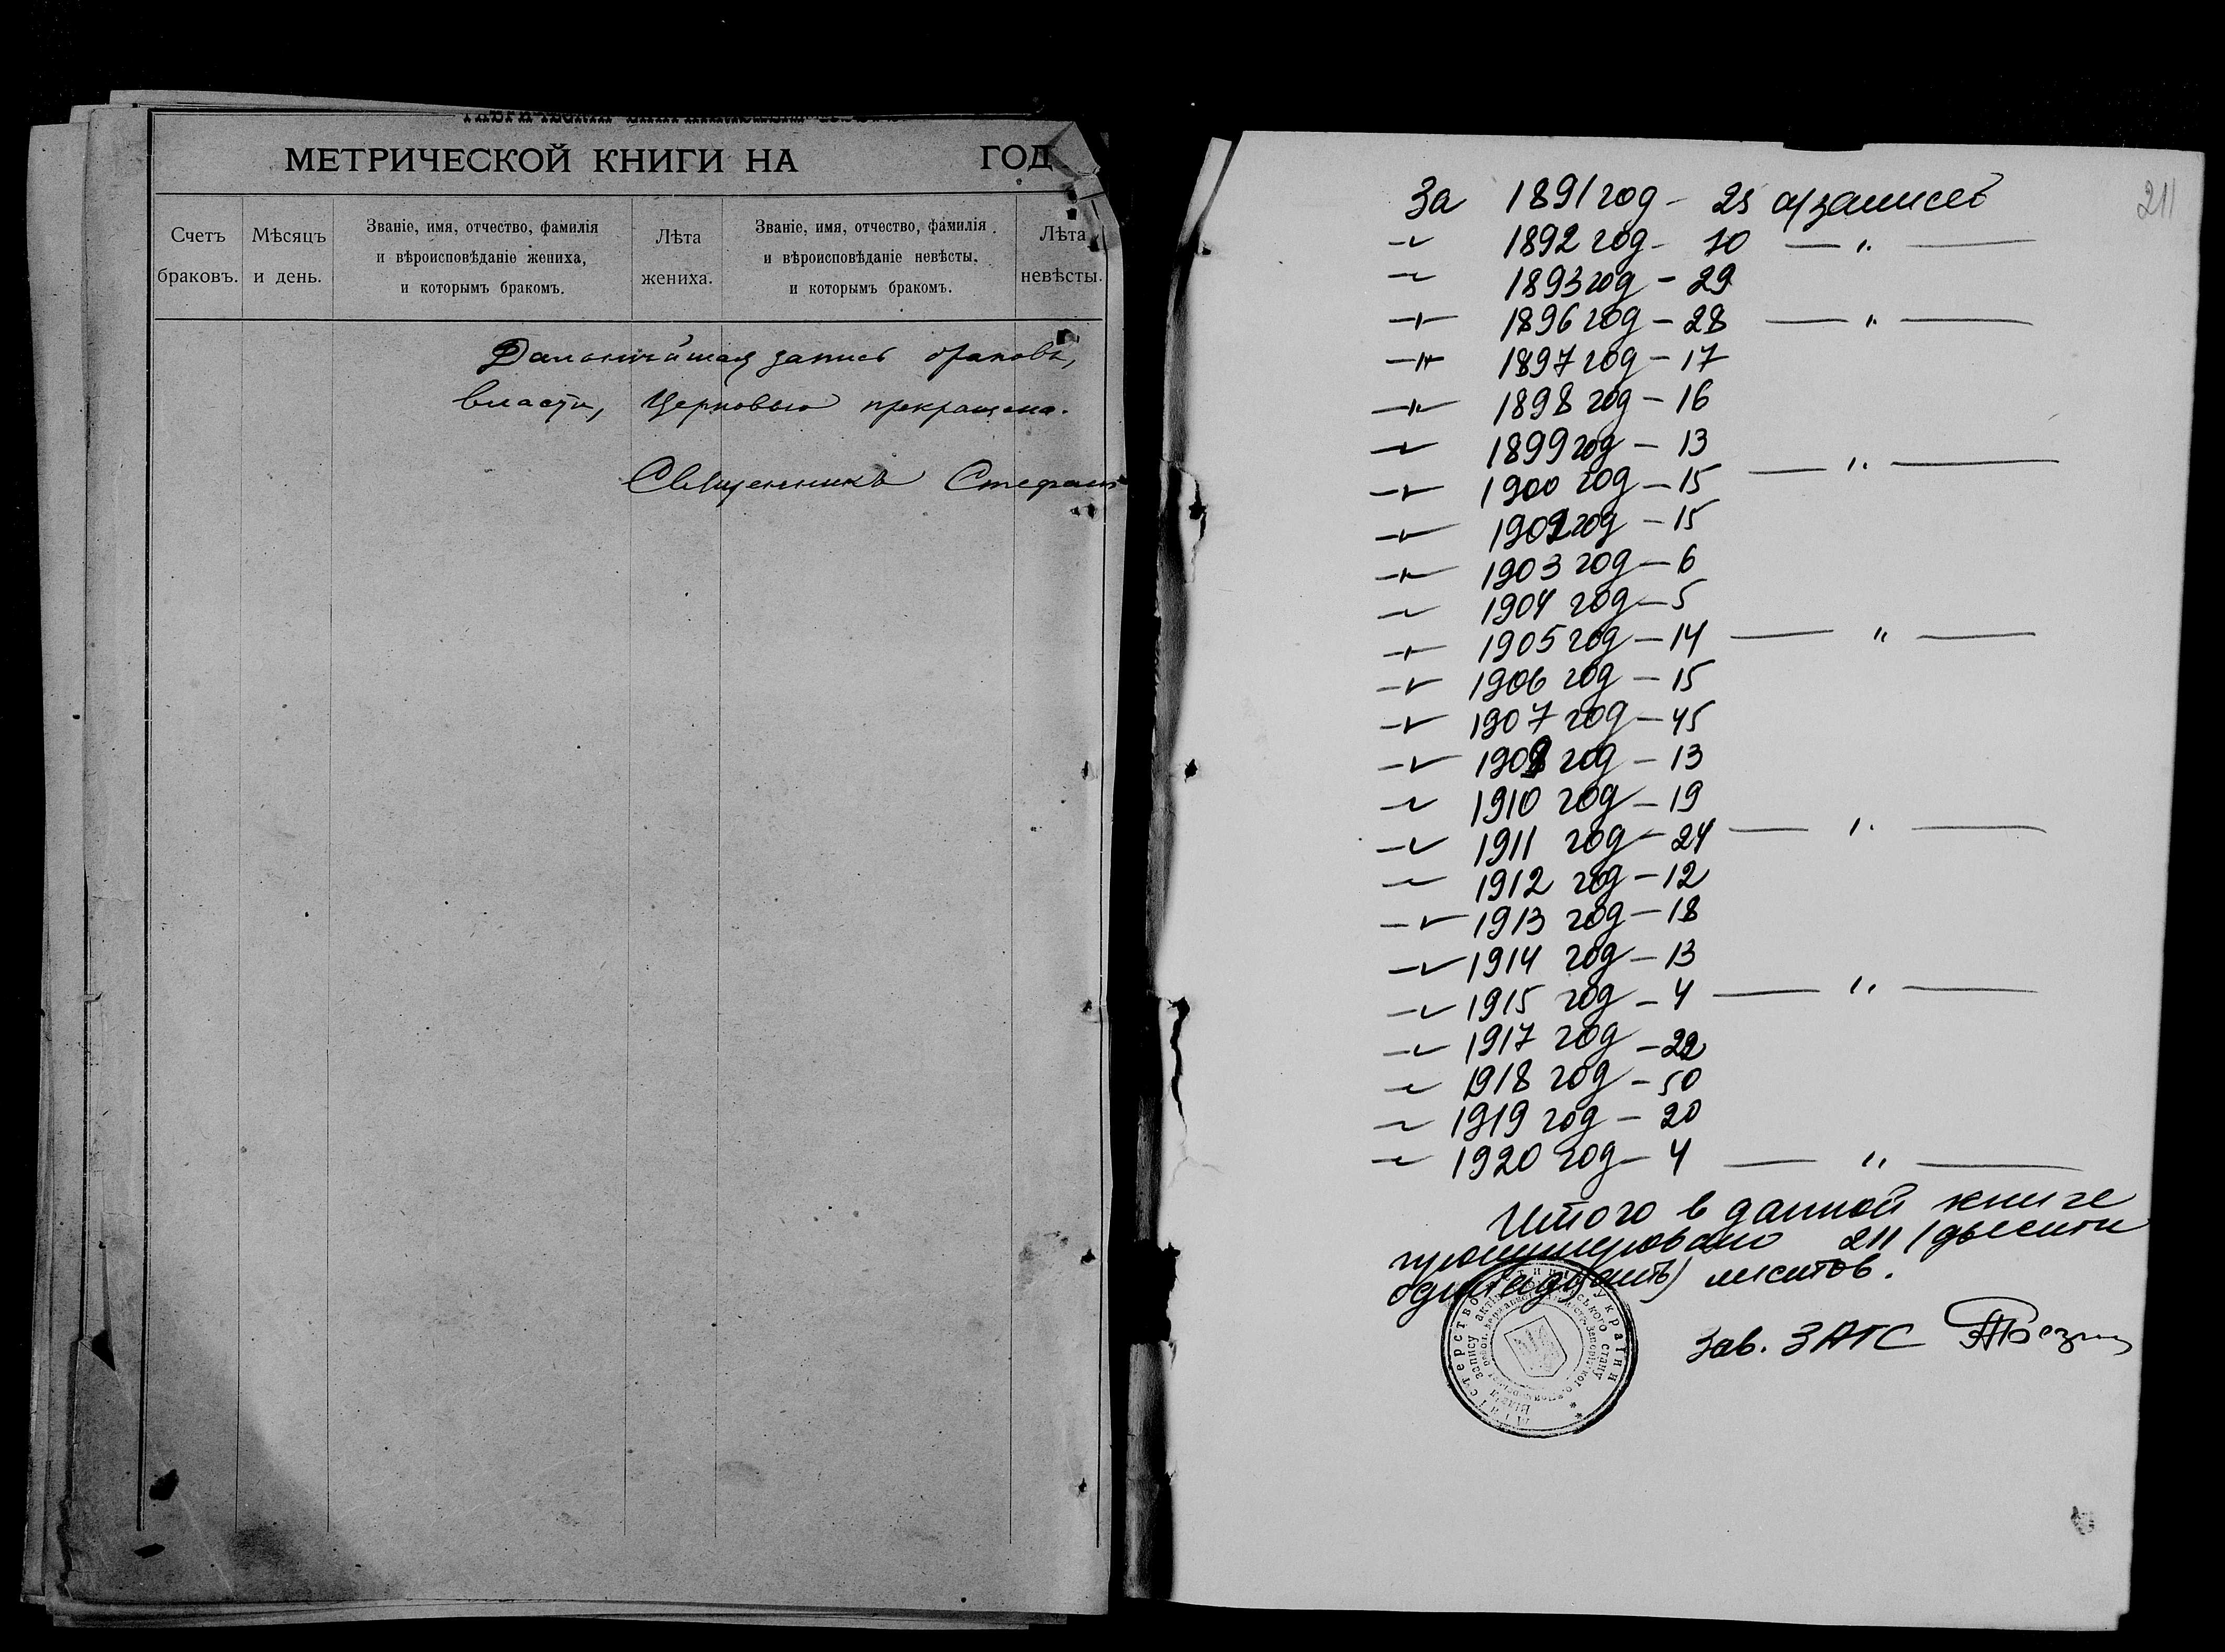 МЕТРИЧЕСКОЙ КНИГИ НА ГОД
Счетъ браковъ.
Мѣсяцъ и день.
Званіе, имя, отчество, фамилія
и вѣроисповѣданіе жениха,
и которымъ бракомъ.
Лѣта жениха.
Званіе, имя, отчество, фамилія
и вѣроисповѣданіе невѣсты,
и которымъ бракомъ.
Лѣта невѣсты.
Дальнѣйшая запись браковъ,
власти, Церковью прекращена.
Священникъ Стефан
211
За 1891 год – 25 а/записей
–"– 1892 год – 10 — " —
–"– 1893 год – 29
–"– 1896 год – 28 — " —
–"– 1897 год – 17
–"– 1898 год – 16
–"– 1899 год – 13
–"– 1900 год – 15 — " —
–"– 1902 год – 15
–"– 1903 год – 6
–"– 1904 год – 5
–"– 1905 год – 14 — " —
–"– 1906 год – 15
–"– 1907 год – 45
–"– 1908 год – 13
–"– 1910 год – 19
–"– 1911 год – 24 — " —
–"– 1912 год – 12
–"– 1913 год – 18
–"– 1914 год – 13
–"– 1915 год – 4 — " —
–"– 1917 год – 22
–"– 1918 год – 50
–"– 1919 год – 20
–"– 1920 год – 4 — " —
Итого в данной книге
пронумеровано 211 (двести
одинадцать) листов.
Зав. ЗАГС